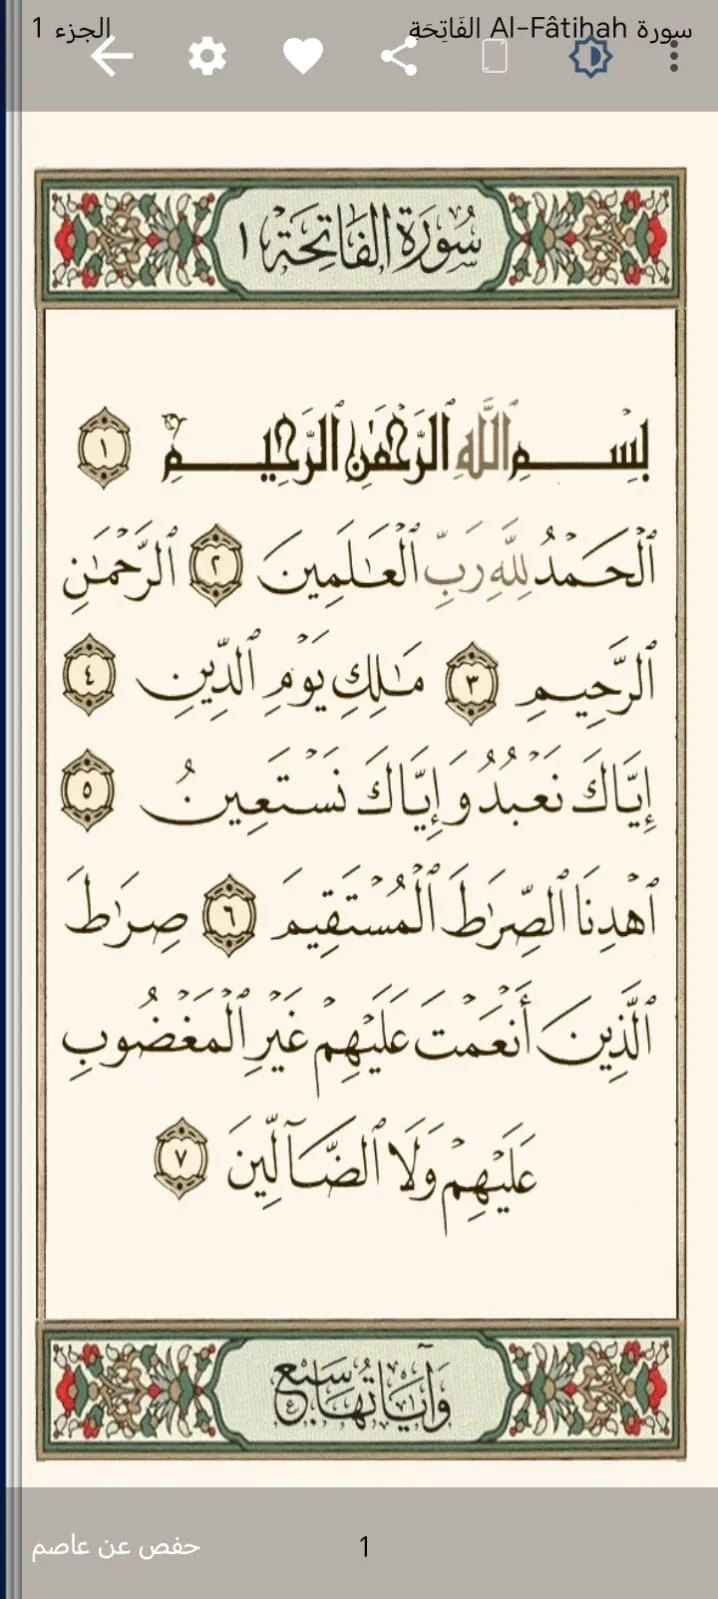 سورة Al-Fâtihah الفَاتِحَة
الجزء 1
سُورَةُ الفَاتِحَةِ ١
بِسۡمِ ٱللَّهِ ٱلرَّحۡمَٰنِ ٱلرَّحِيمِ ١
ٱلۡحَمۡدُ لِلَّهِ رَبِّ ٱلۡعَٰلَمِينَ ٢ ٱلرَّحۡمَٰنِ
ٱلرَّحِيمِ ٣ مَٰلِكِ يَوۡمِ ٱلدِّينِ ٤
إِيَّاكَ نَعۡبُدُ وَإِيَّاكَ نَسۡتَعِينُ ٥
ٱهۡدِنَا ٱلصِّرَٰطَ ٱلۡمُسۡتَقِيمَ ٦ صِرَٰطَ
ٱلَّذِينَ أَنۡعَمۡتَ عَلَيۡهِمۡ غَيۡرِ ٱلۡمَغۡضُوبِ
عَلَيۡهِمۡ وَلَا ٱلضَّآلِّينَ ٧
وَآيَاتُهَا سَبْعٌ
حفص عن عاصم
1